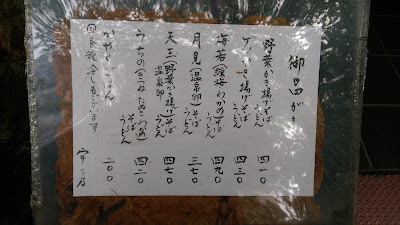 御品がき
野菜かき揚げそば うどん 四一〇
ゲソかき揚げそば うどん 四三〇
海若(わかめ)そば うどん 四九〇
月見(温泉卵)そば うどん 三七〇
天玉(野菜かき揚げ 温泉卵)そば うどん 四七〇
うちの(きつね たぬき わかめ)そば うどん 四二〇
かやくごはん 二〇〇
冷しもございます。